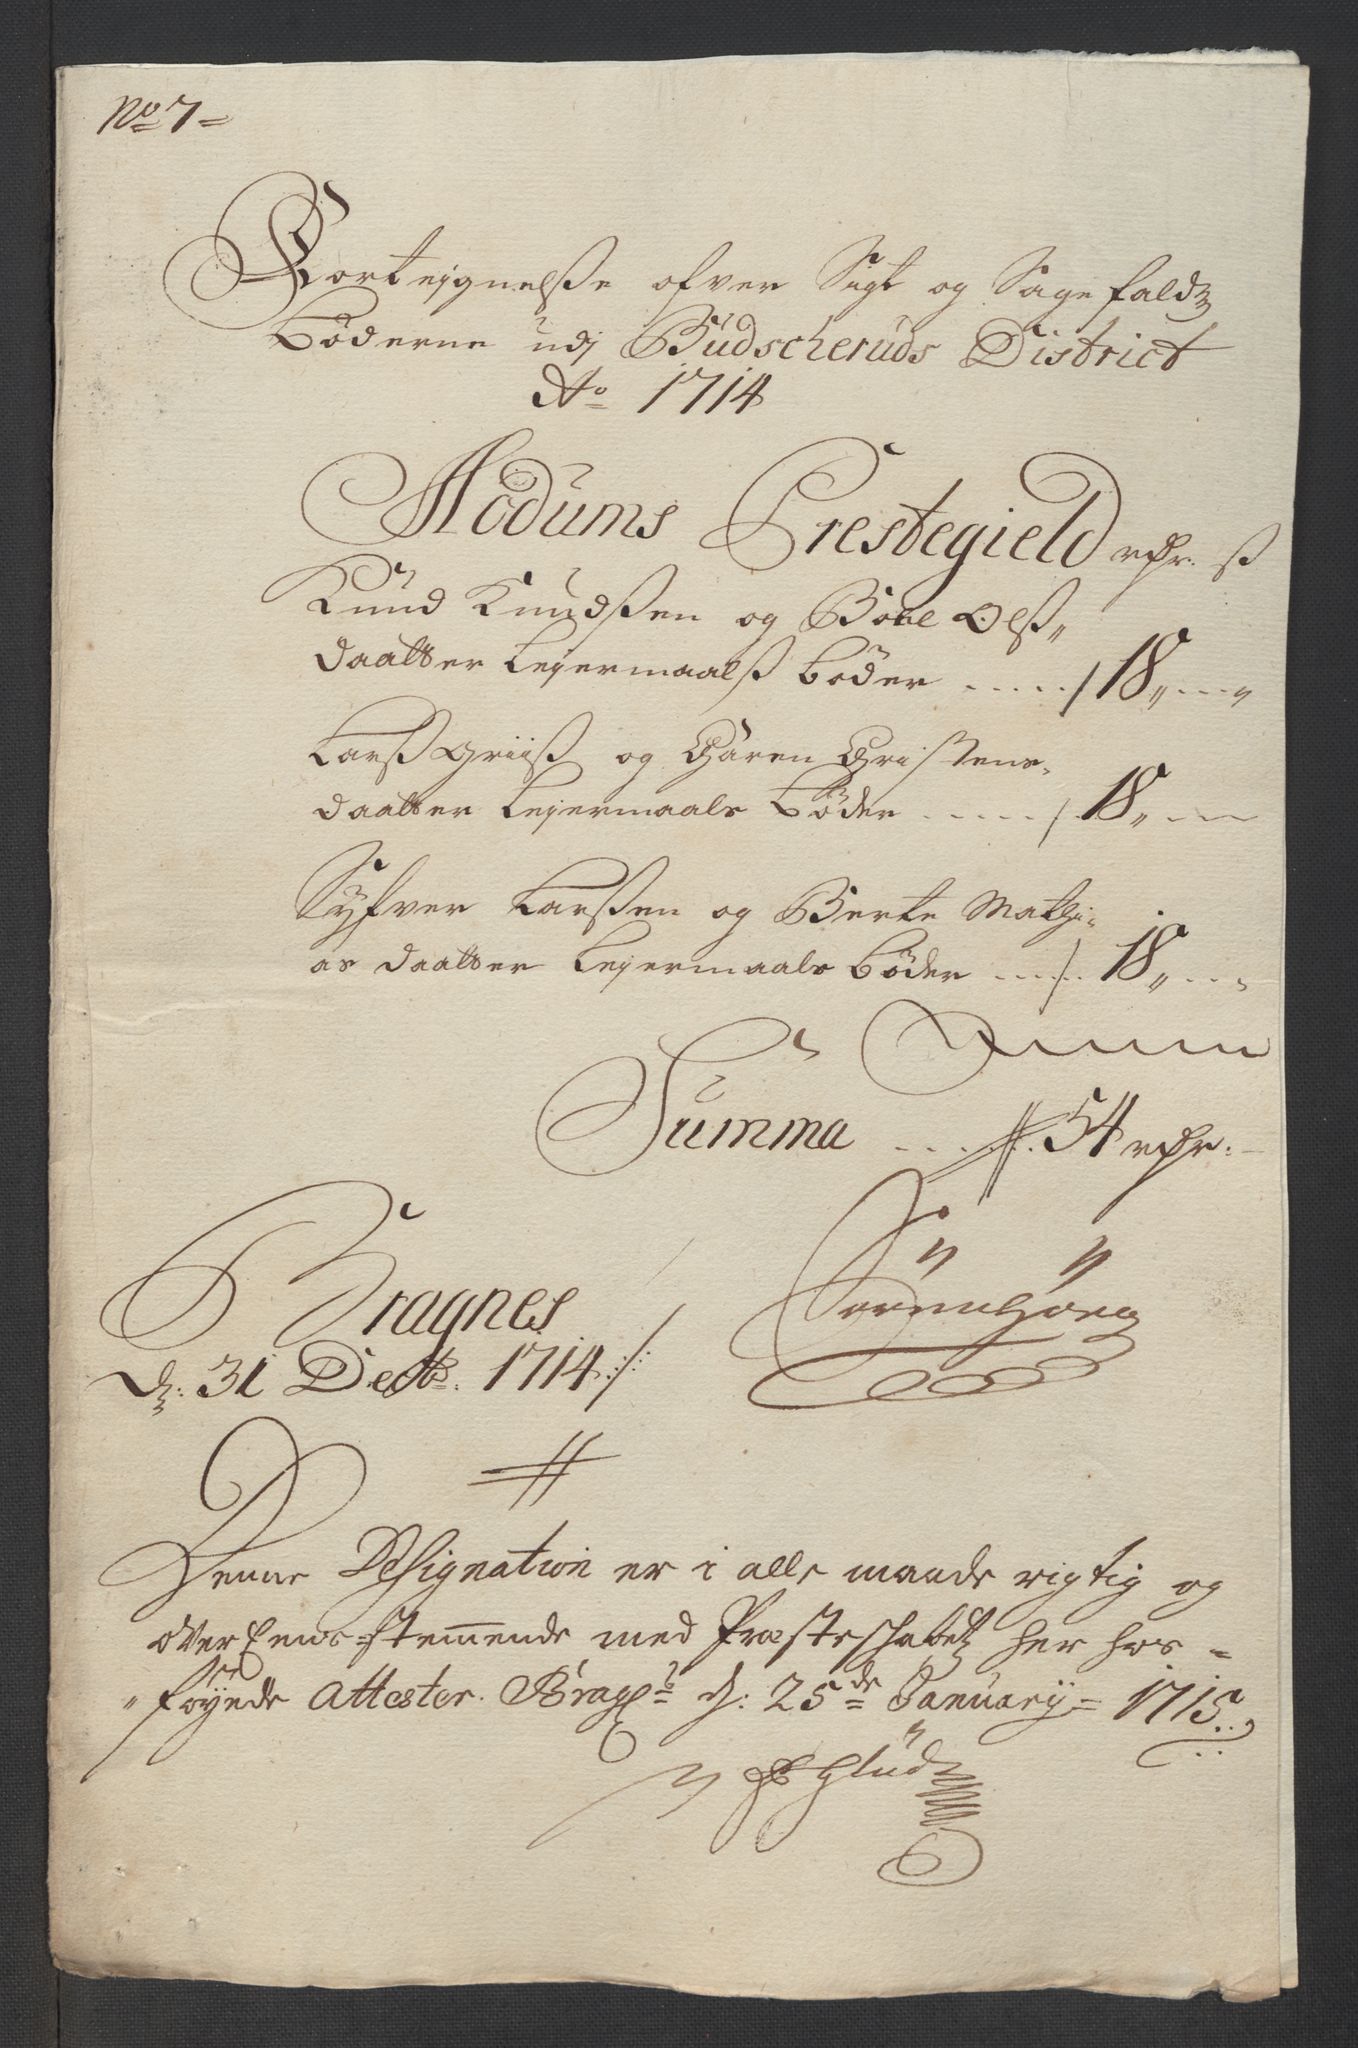 No 7 =
Forteignelsße ofver Sigt og Sagefaldz
bøderne udj Budscheruds District
Ao 1714
Modums Prestegield rdr. ß
Knud Knudsßen og Boel Olß„
daatter Leyermaalß bøder ..... / 18„ ... „
Larß Griiß og Karen Christens„
daatter Leyermaals bøder ..... / 18„ ...
Syfver Larsßen og Berte Mathi„
as daatter Leyermaals bøder ..... / 18„ ...
Summa .... 54 rdr:
Bragnes
d: 31 Decbr: 1714
Sørren
Denne Designation er i alle maade rigtig og
over Eens stemmende med Præsteschabetz her hos =
„ føyede Attester. Bragns d: 25de January = 1715
Glud